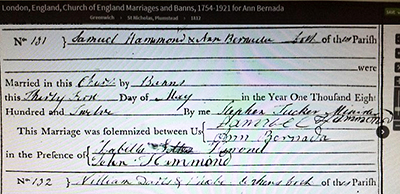 London, England, Church of England Marriages and Banns, 1754-1921 for Ann Bernada
Greenwich › St Nicholas, Plumstead › 1812
No 131 Samuel Hammond & Ann Bernada both of this Parish
were
Married in this Church by Banns
this Thirty First Day of May in the Year One Thousand Eight
Hundred and Twelve By me Stephen Tucker
This Marriage was solemnized between Us Samuel Hammond
Ann Bernada
in the Presence of Isabella
John Hammond
No 132 William &